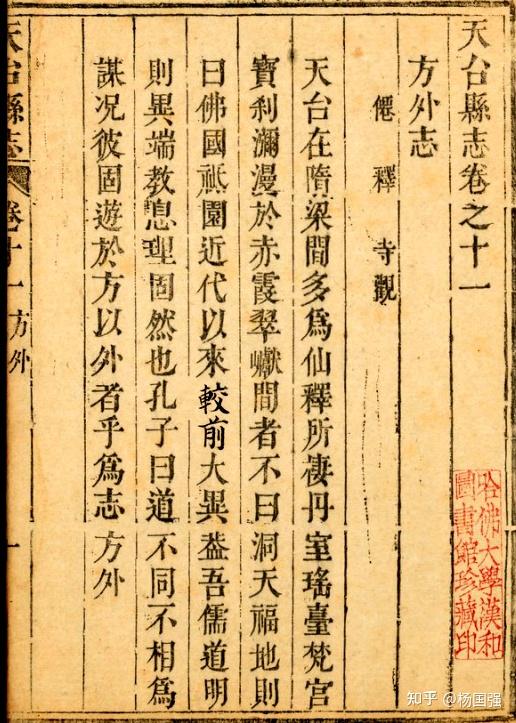 天台縣志卷之十一
方外志
僊 釋 寺觀
天台在隋梁間多爲仙釋所淒丹室瑤臺梵宮
寶刹瀰漫於赤霞翠巘間者不曰洞天福地則
曰佛國祗園近代以來較前大異葢吾儒道明
則異端教息理固然也孔子曰道不同不相爲
謀况彼固遊於方以外者乎爲志方外
天台縣志 卷十一 方外 一
哈佛大學漢和
圖書館珍藏印
知乎 @杨国强